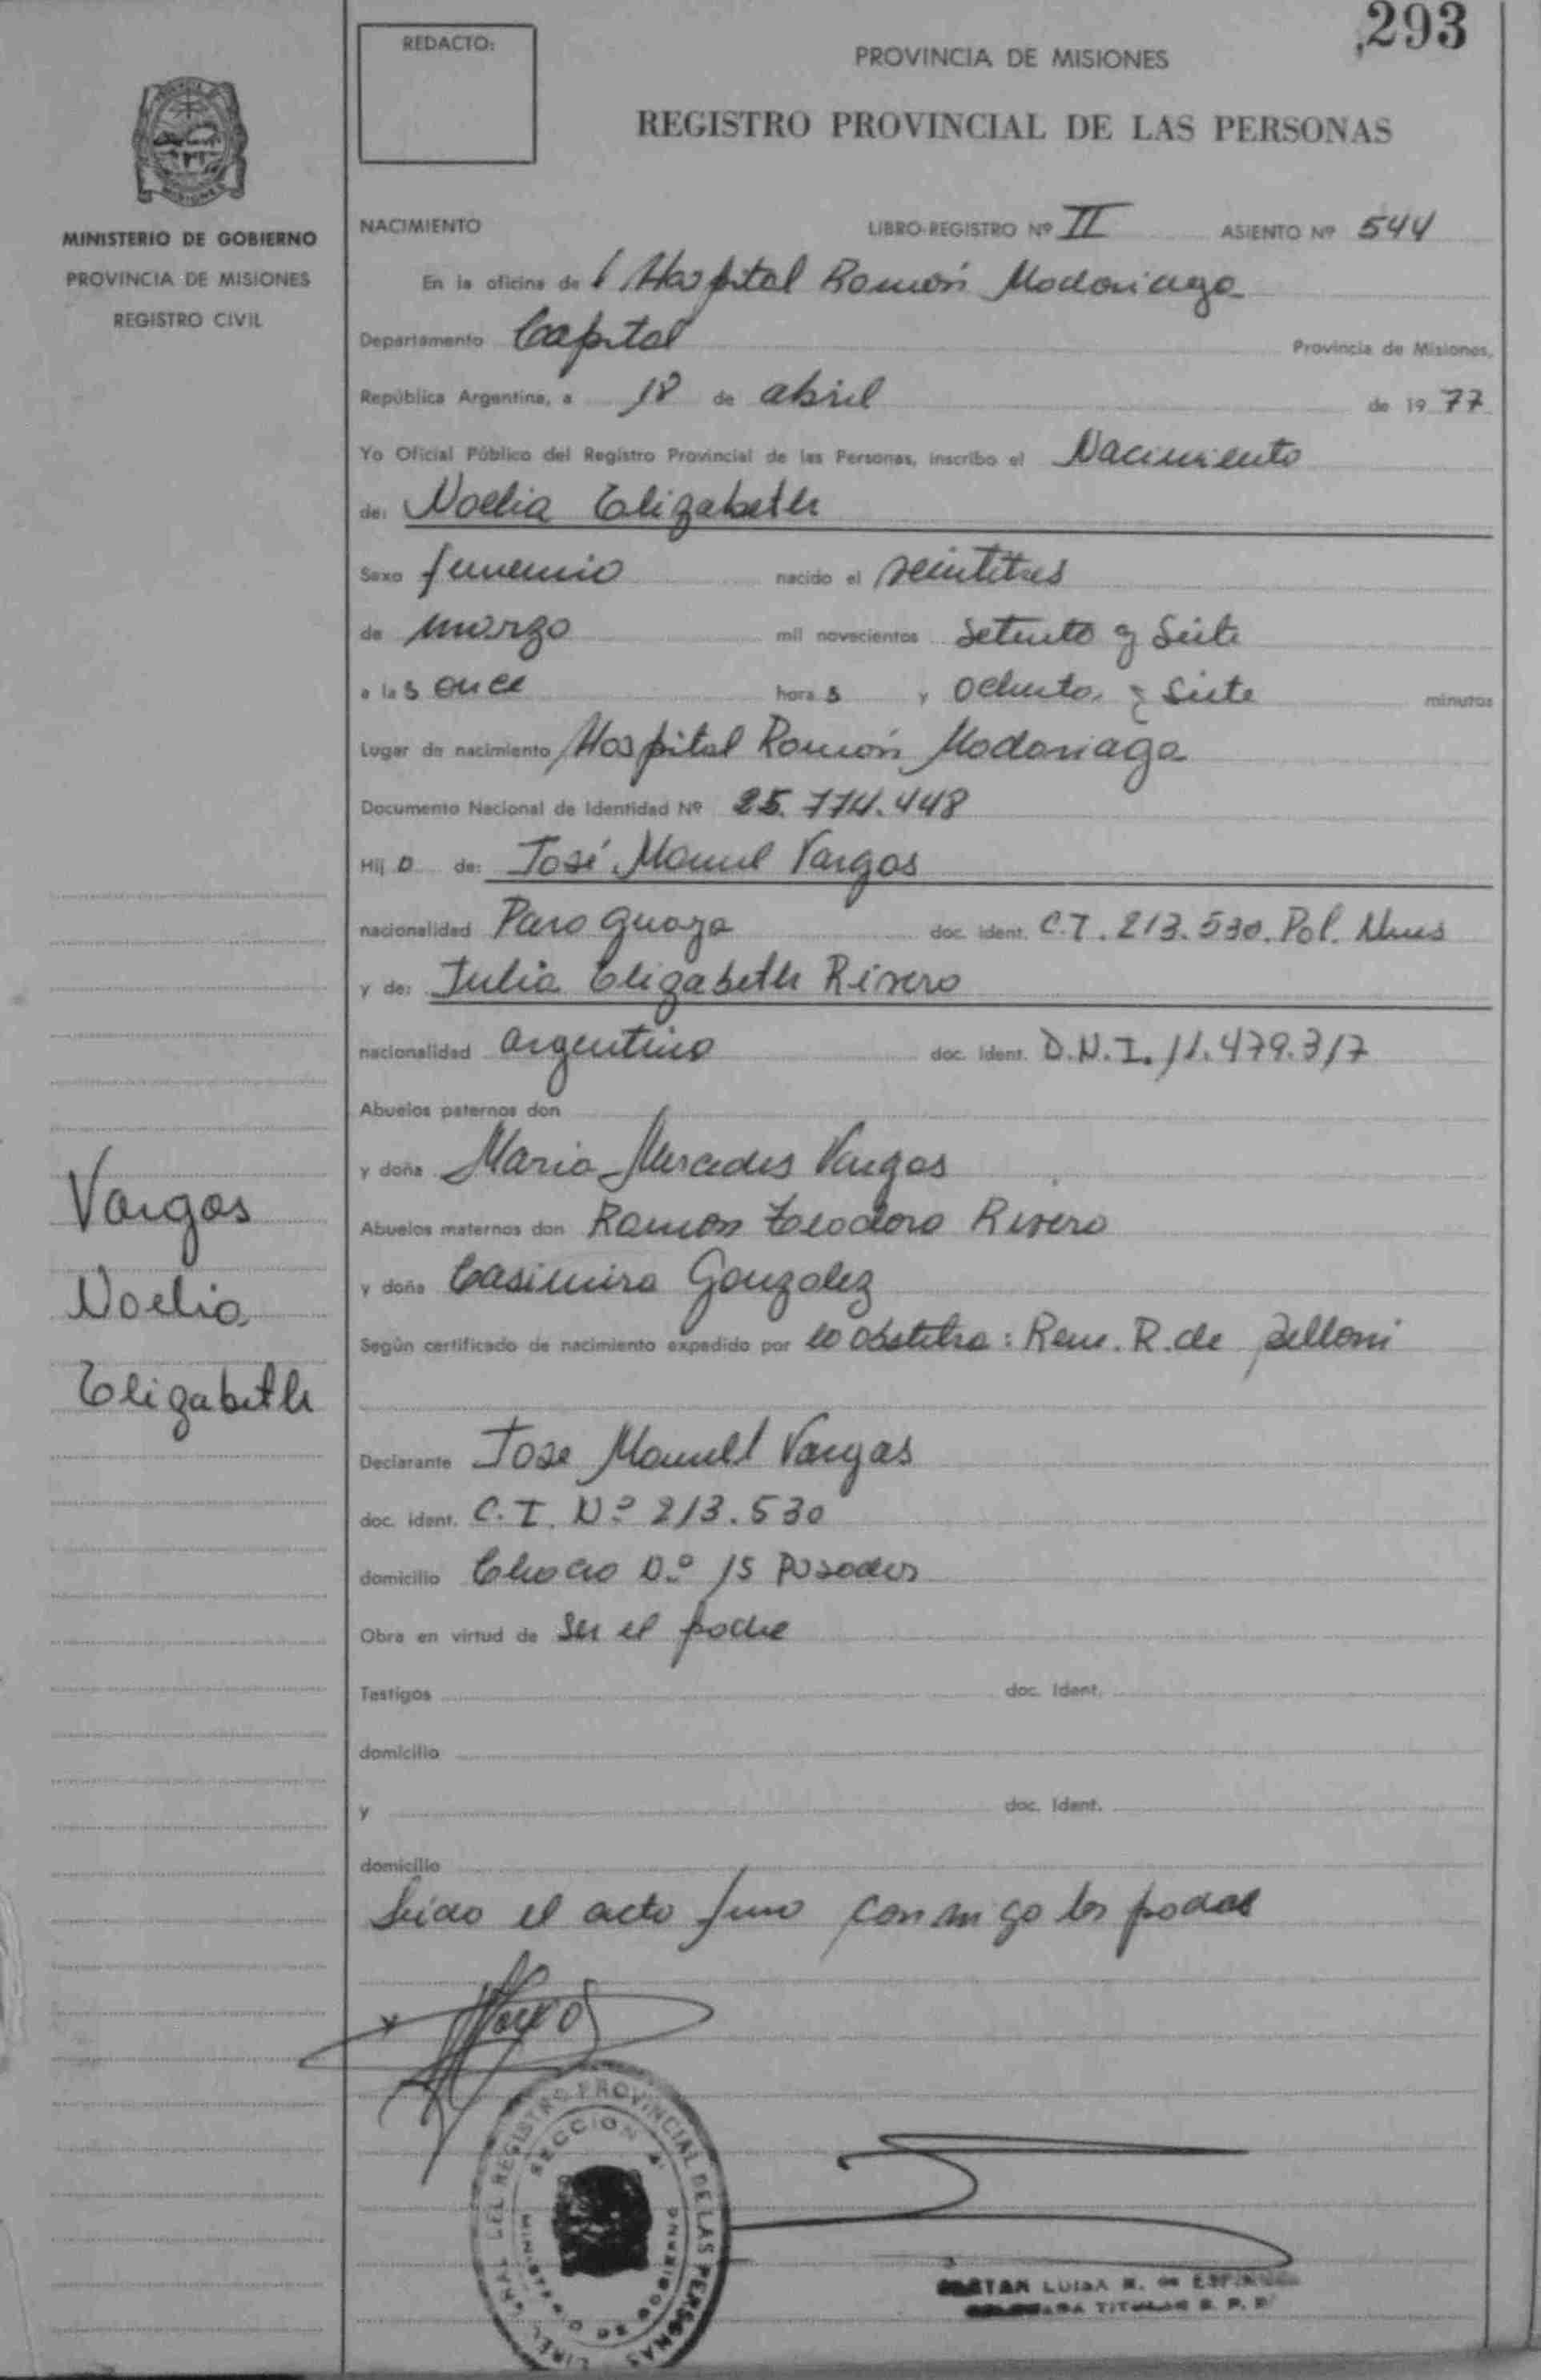 293
REDACTO:
PROVINCIA DE MISIONES
REGISTRO PROVINCIAL DE LAS PERSONAS
MINISTERIO DE GOBIERNO
PROVINCIA DE MISIONES
REGISTRO CIVIL
NACIMIENTO LIBRO-REGISTRO Nº II ASIENTO Nº 544
En la oficina de l Hospital Ramón Madariaga
Departamento Capital Provincia de Misiones,
República Argentina, a 18 de abril de 19 77
Yo Oficial Público del Registro Provincial de las Personas, inscribo el Nacimiento
de: Noelia Elizabeth
Sexo femenino nacido el veintitres
de marzo mil novecientos setenta y siete
a las once horas y ochenta y siete minutos
Lugar de nacimiento Hospital Ramón Madariaga
Documento Nacional de Identidad Nº 25.774.448
Hij a de: José Manuel Vargas
nacionalidad Paraguaya doc. ident. C.I. 213.530. Pol. Mnes
y de: Julia Elizabeth Rivero
nacionalidad argentina doc. ident. D.N.I. 11.479.317
Abuelos paternos don
y doña Maria Mercedes Vargas
Abuelos maternos don Ramon Teodoro Rivero
y doña Casimira Gonzalez
Según certificado de nacimiento expedido por la obstetra: Rene. R. de Zelloni
Vargas
Noelia
Elizabeth
Declarante Jose Manuel Vargas
doc. ident. C.I. Nº 213.530
domicilio Chacra Nº 15 Posadas
Obra en virtud de ser el padre
Testigos doc. ident.
domicilio
y doc. ident.
domicilio
Leido el acta firma conmigo los padres
REGISTRO PROVINCIAL DE LAS PERSONAS
SECCION
LUISA
TITULAR